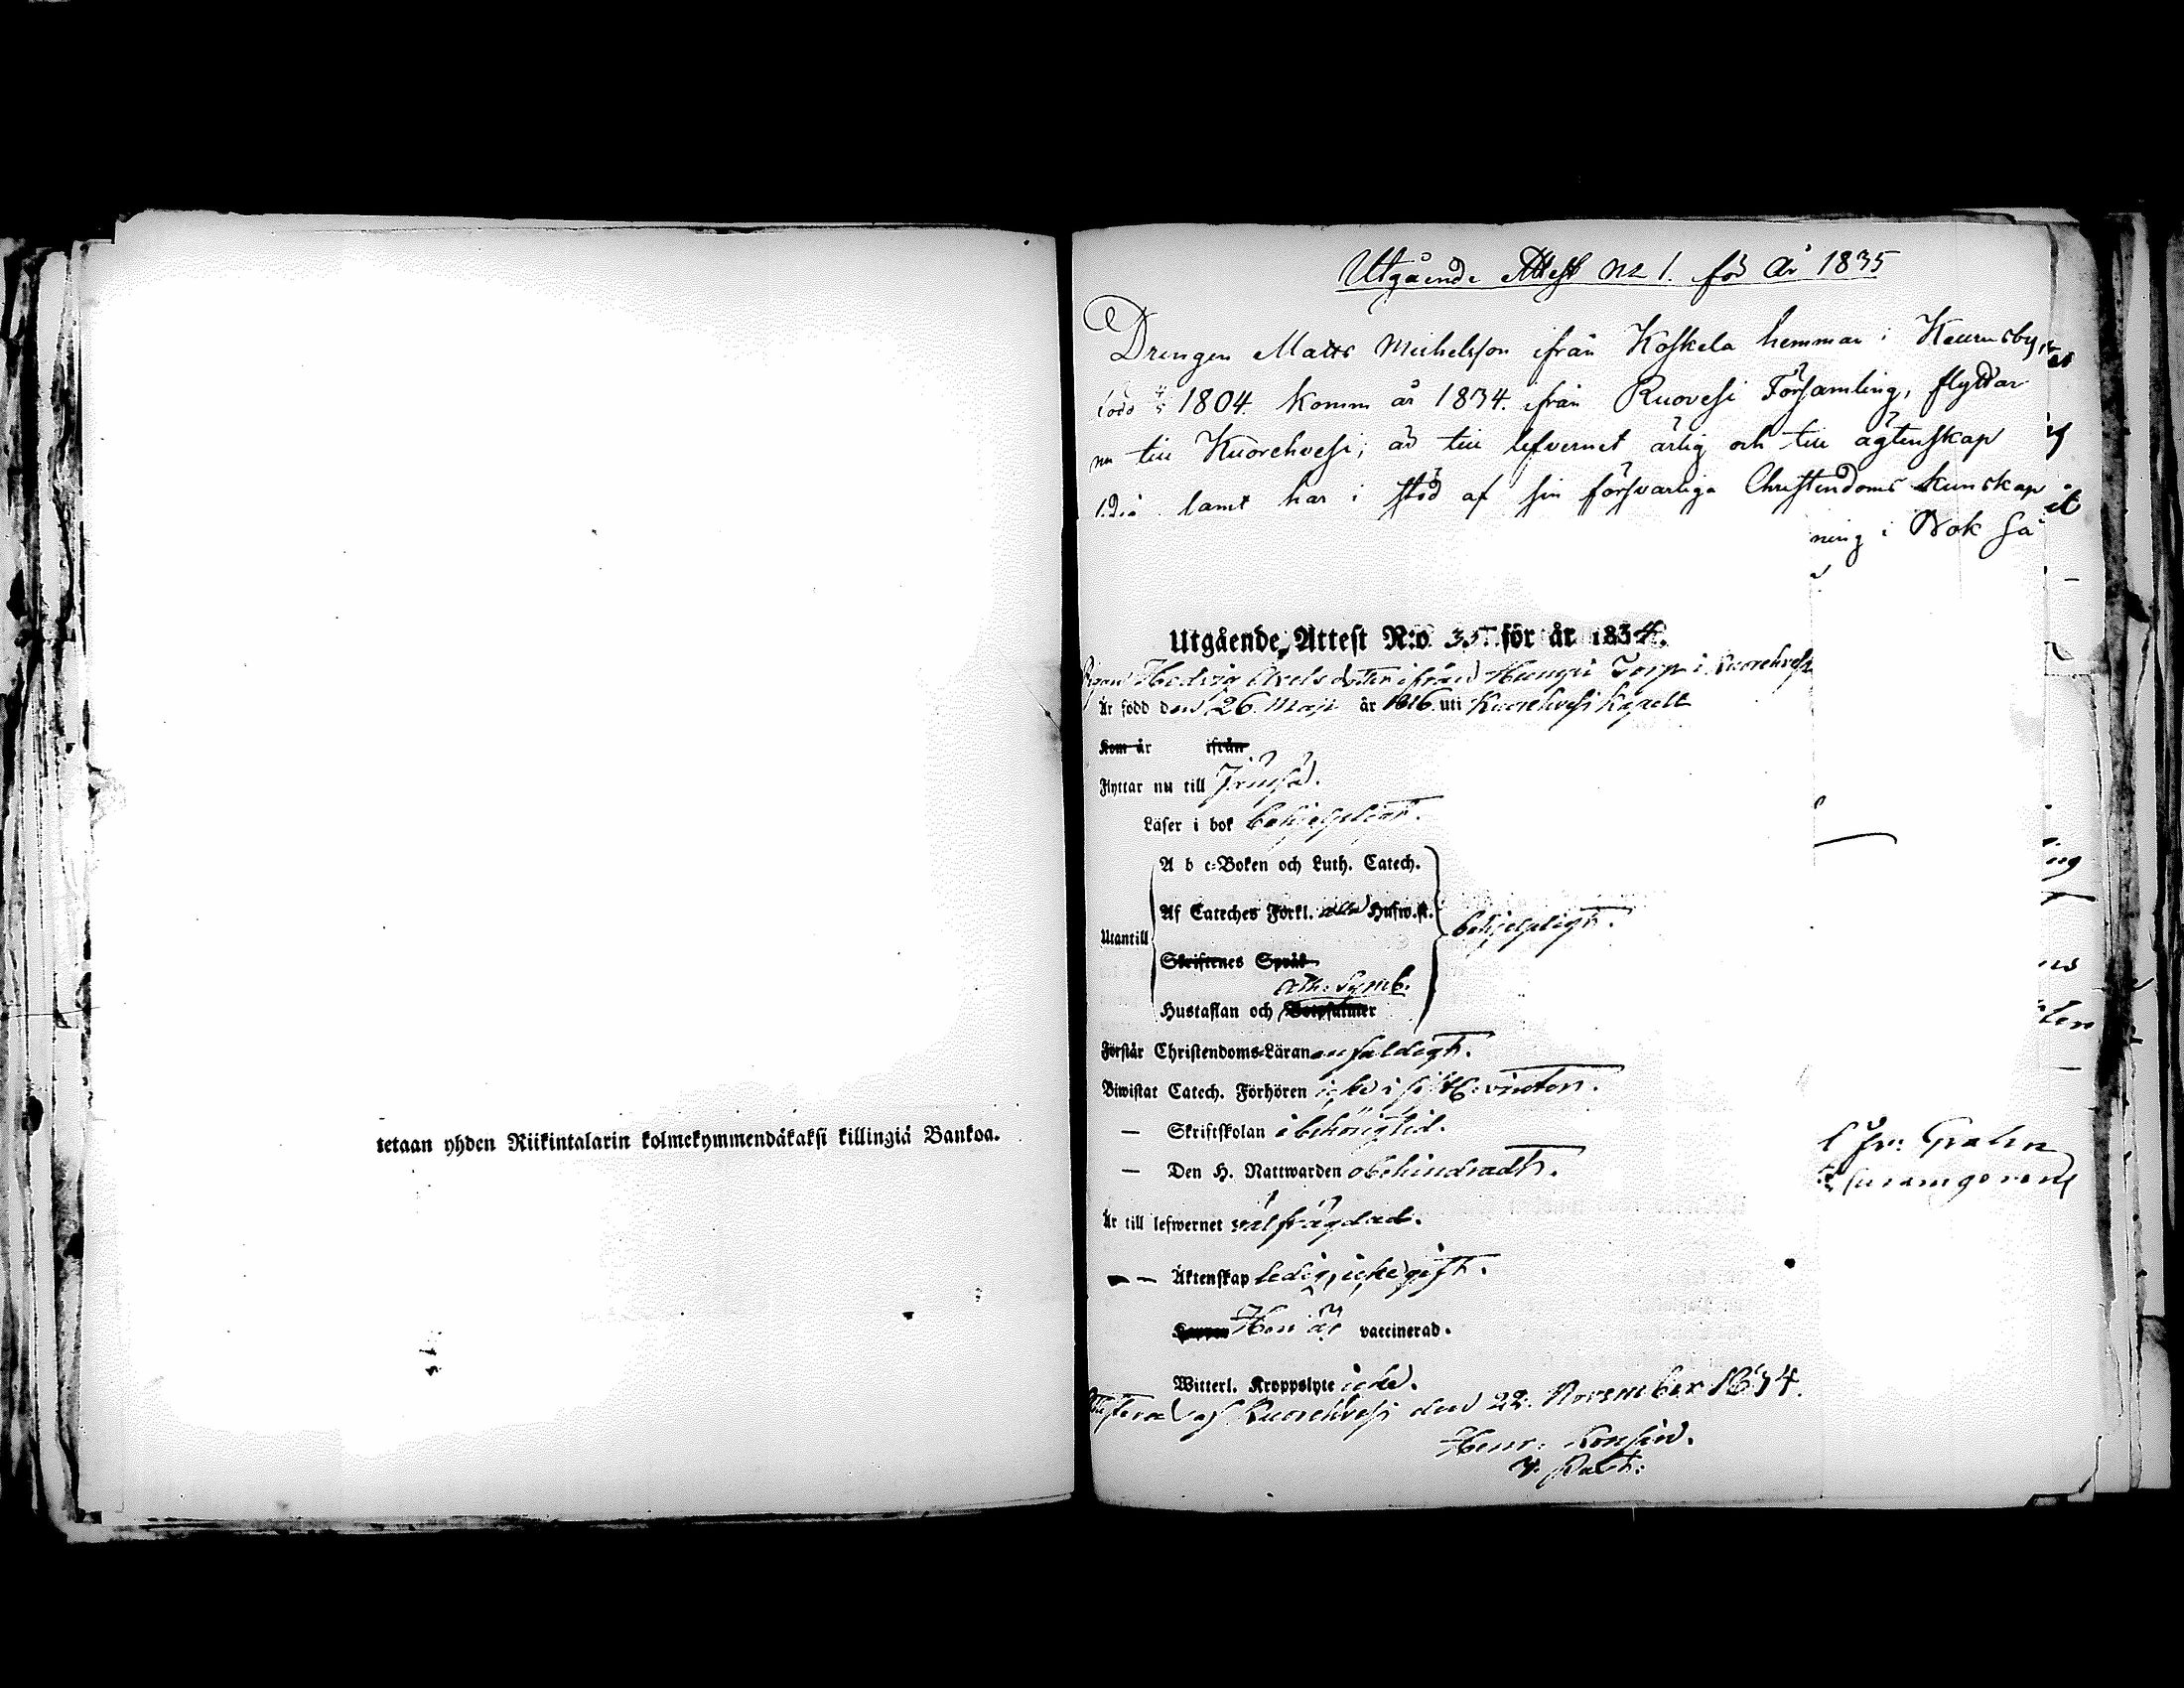 tetaan yhden Riikintalarin kolmekymmendäkaksi killingiä Bankoa.
Utgående Attest No 1. för År 1835
Drengen Matts Michelsson ifrån Koskela hemman i Keurusby
född 1804. Komm år 1834. ifrån Ruovesi Församling, flyttar
nu till Kuorehvesi; är till lefvernet ärlig och till ägtenskap
ledig samt har i stöd af sin försvarliga Christendoms kunskap
ning i Nok så
Utgående Attest N:o 35 för år 1834.
Pigan Hedvig Axelsdotter ifrån Torp i Kuorehvesi
Är född den 26 Maji år 1816 uti Kuorehvesi Kapell
Kom år ifrån
Flyttar nu till Jämsä.
Läser i bok behjelpligt.
A b c-Boken och Luth. Catech.
Af Cateches Förkl. Husw.st.
Utantill
behjelpligt.
Skriftenes Språk
Ath. Symb.
Hustaflan och Botpsalmer
Förstår Christendoms-Läran enfaldigt.
Biwistat Catech. Förhören vinter.
— Skriftskolan i behörig tid.
— Den H. Nattwarden obehindradt.
Är till lefwernet välfrägdad.
— Äktenskap ledig, icke gift.
Hon är vaccinerad.
Witterl. Kroppslyte icke.
af Kuorehvesi den 22. November 1834.
Henr. Konsin.
V. Past:
Grahn